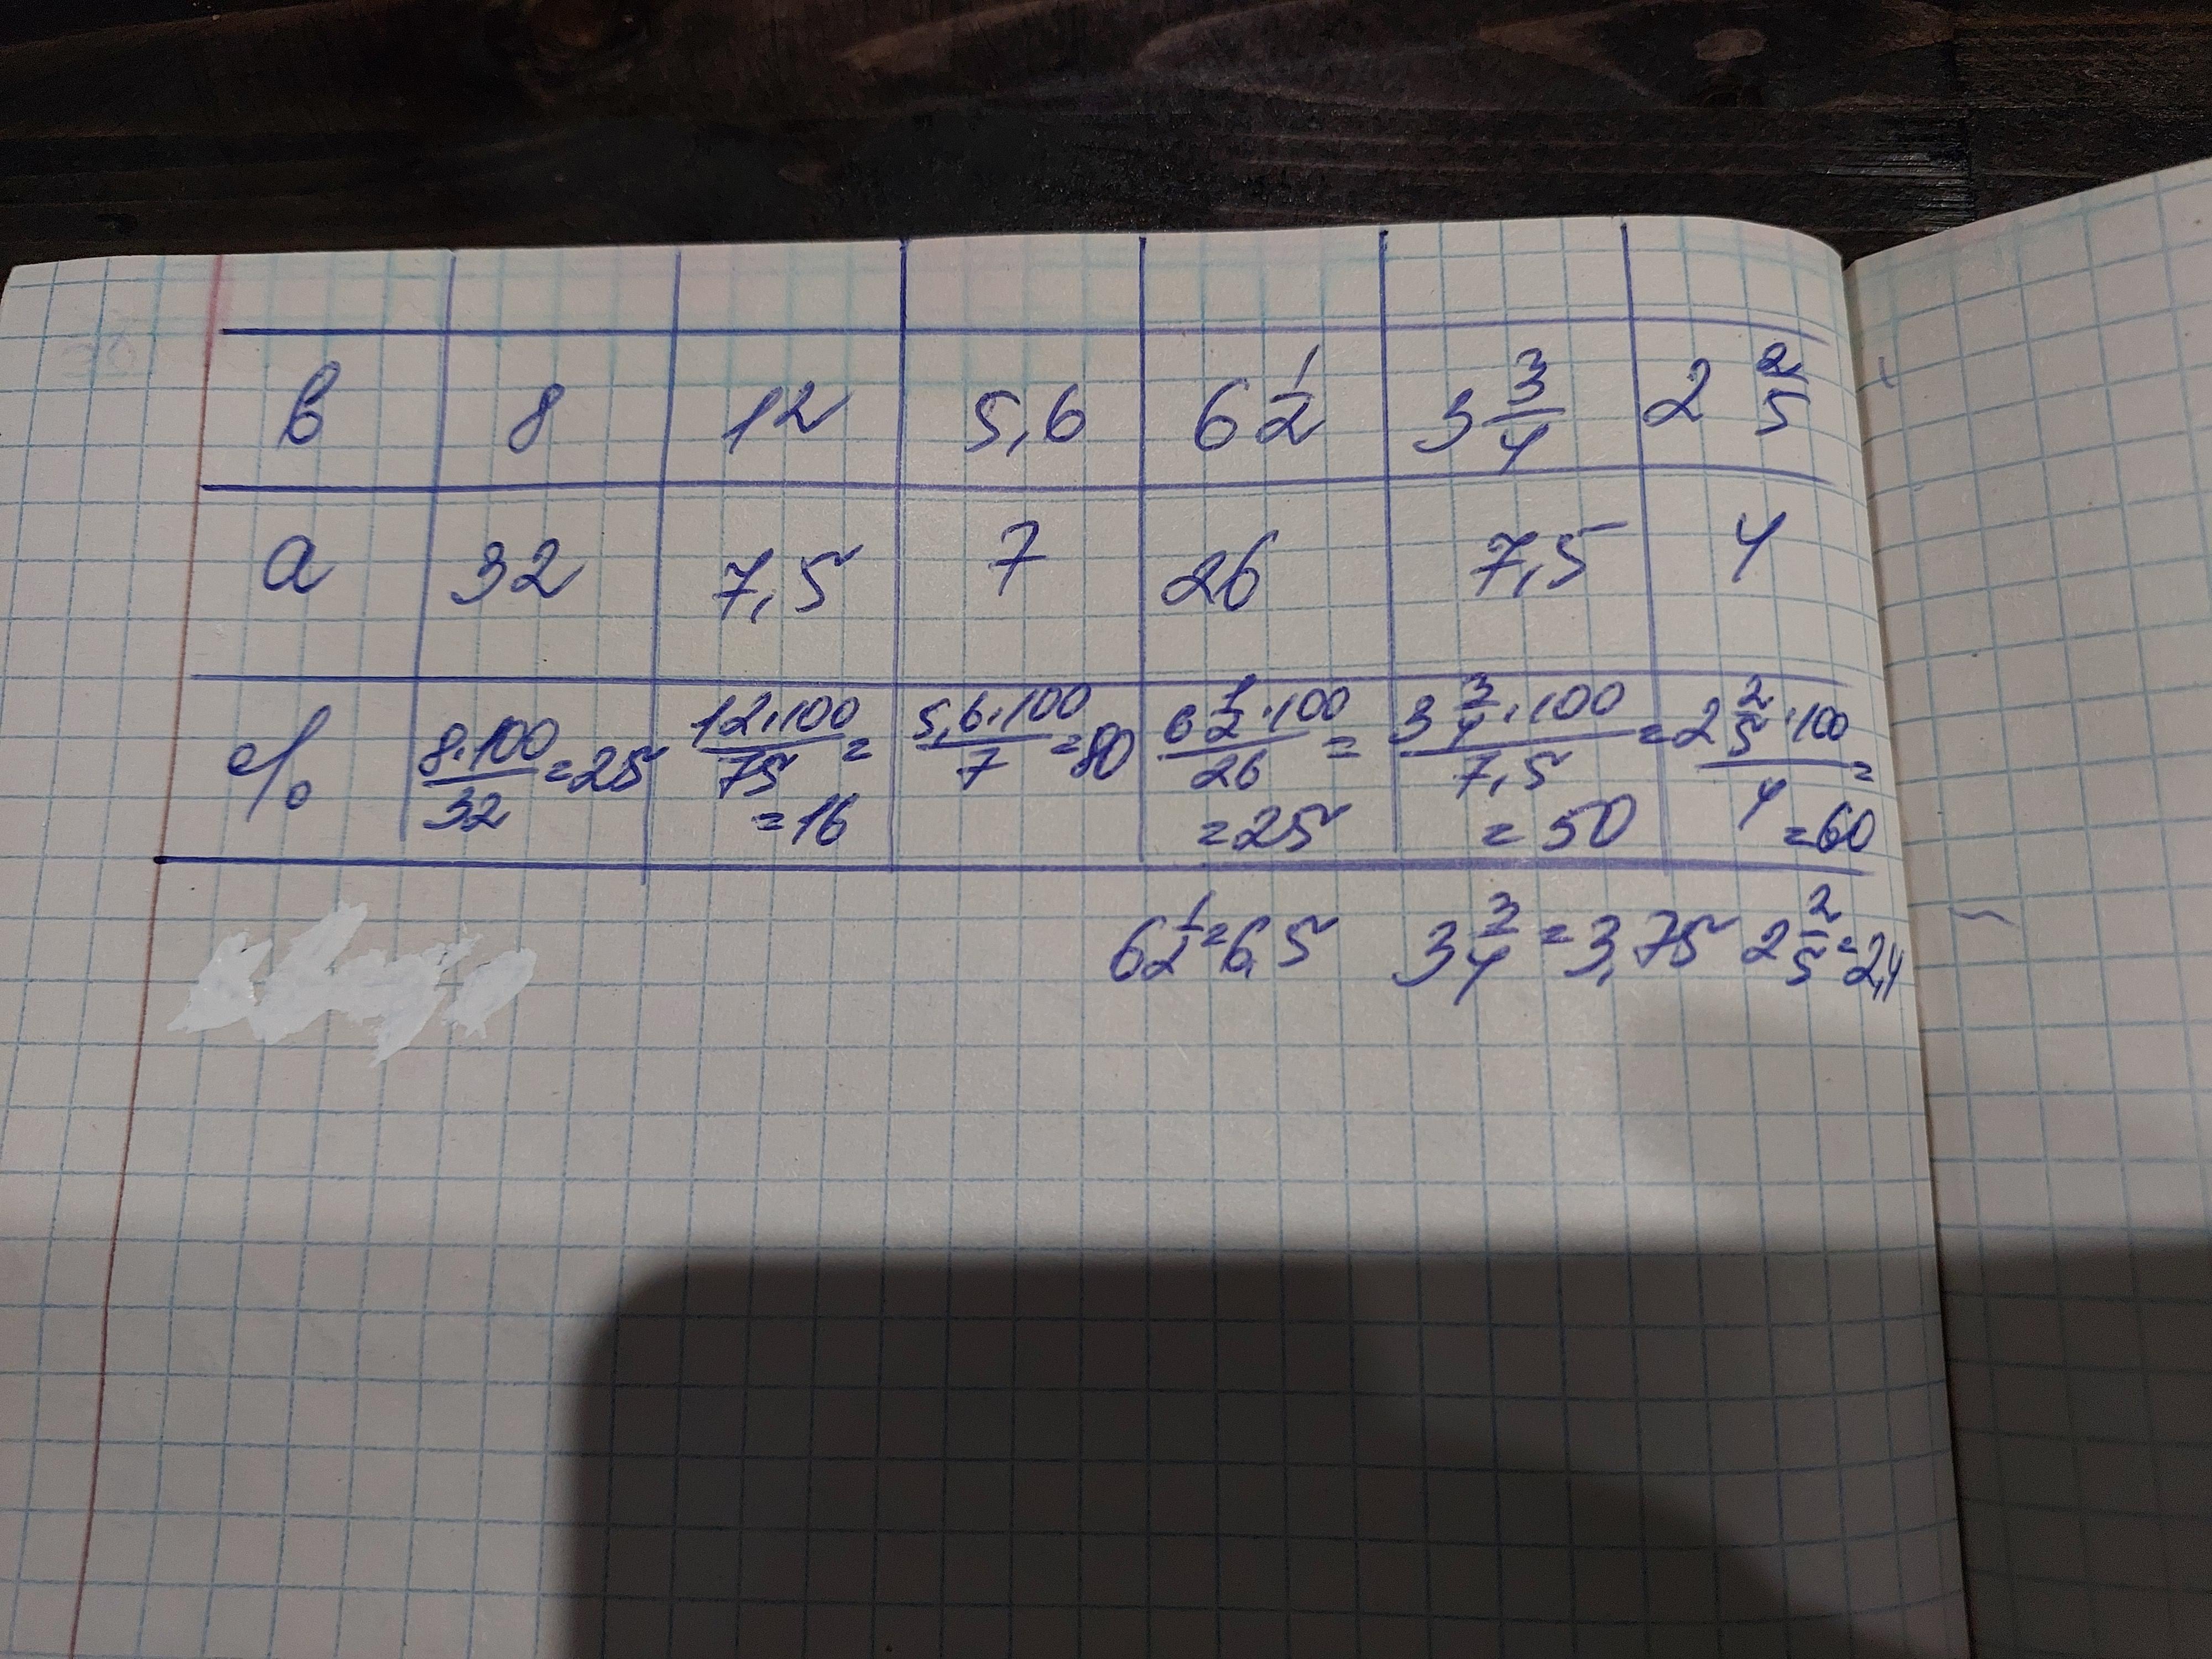 в 8 12 5,6 6 1/2 3 3/4 2 2/5
а 32 7,5 7 26 7,5 4
% 8·100/32=25 12·100/75= 5,6·100/7=80 6 1/2·100/26= 3 3/4·100/7,5= 2 2/5·100/4=
=16 =25 =50 =60
6 1/2=6,5 3 3/4=3,75 2 2/5=2,4